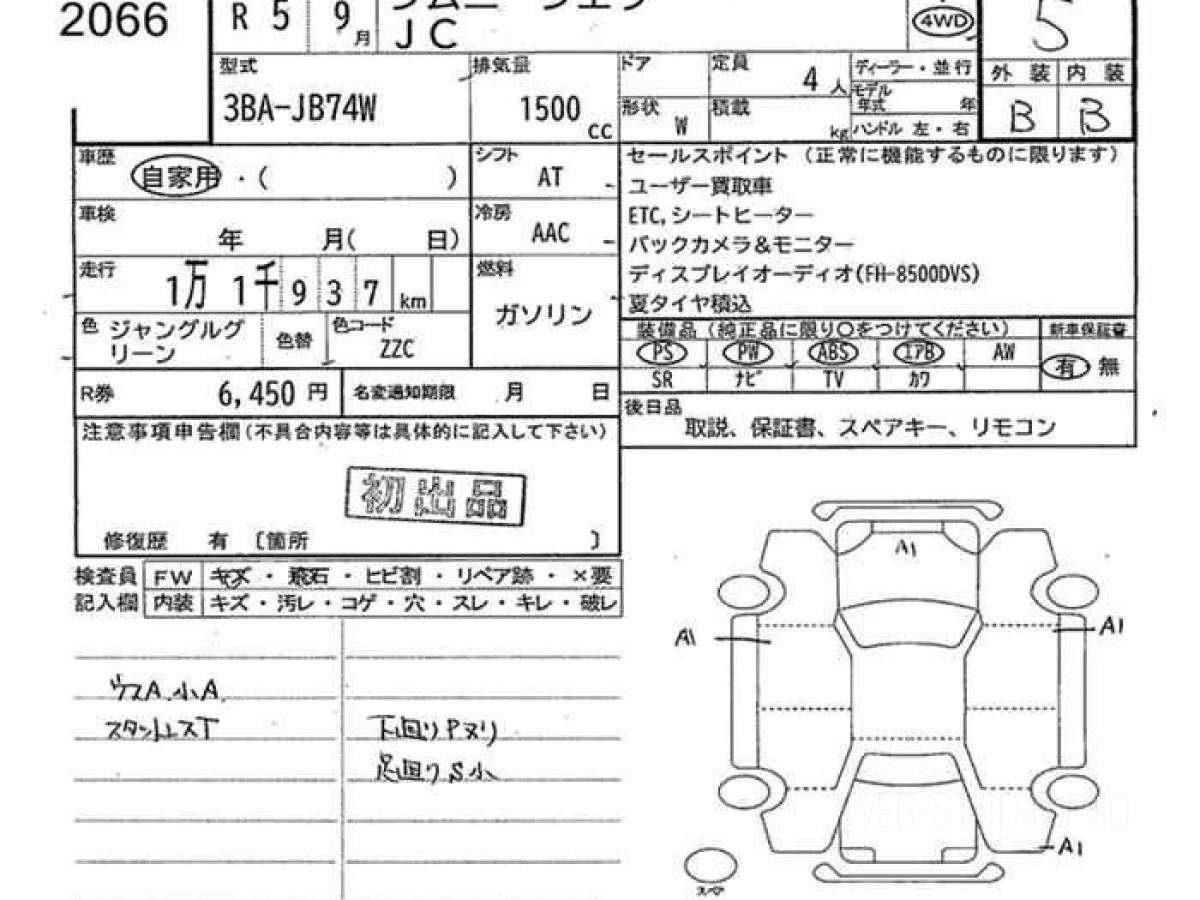 2066
R 5
9月
ジムニーシエラ
JC
4WD
5
型式
3BA-JB74W
排気量
1500
cc
ドア
形状
W
定員
4人
積載
kg
ディーラー・並行
モデル
年式
年
ハンドル 左・右
外装 内装
B B
車歴
自家用・( )
シフト
AT
車検
年 月( 日)
冷房
AAC
走行
1万 1千 9 3 7 km
燃料
ガソリン
色
ジャングルグ
リーン
色替
色コード
ZZC
R券
6,450 円
名変通知期限
月 日
セールスポイント (正常に機能するものに限ります)
ユーザー買取車
ETC,シートヒーター
バックカメラ&モニター
ディスプレイオーディオ(FH-8500DVS)
夏タイヤ積込
装備品(純正品に限り○をつけてください)
新車保証書
PS PW ABS エアB AW
有 無
SR ナビ TV カワ
後日品
取説、保証書、スペアキー、リモコン
注意事項申告欄(不具合内容等は具体的に記入して下さい)
初出品
修復歴 有 〔箇所 〕
検査員 FW キズ・飛石・ヒビ割・リペア跡・×要
記入欄 内装 キズ・汚レ・コゲ・穴・スレ・キレ・破レ
ウスA.小A.
下回りPヌリ
足回りS小
A1
A1
A1
A1
スペア
WEB-STUDIO.PRO